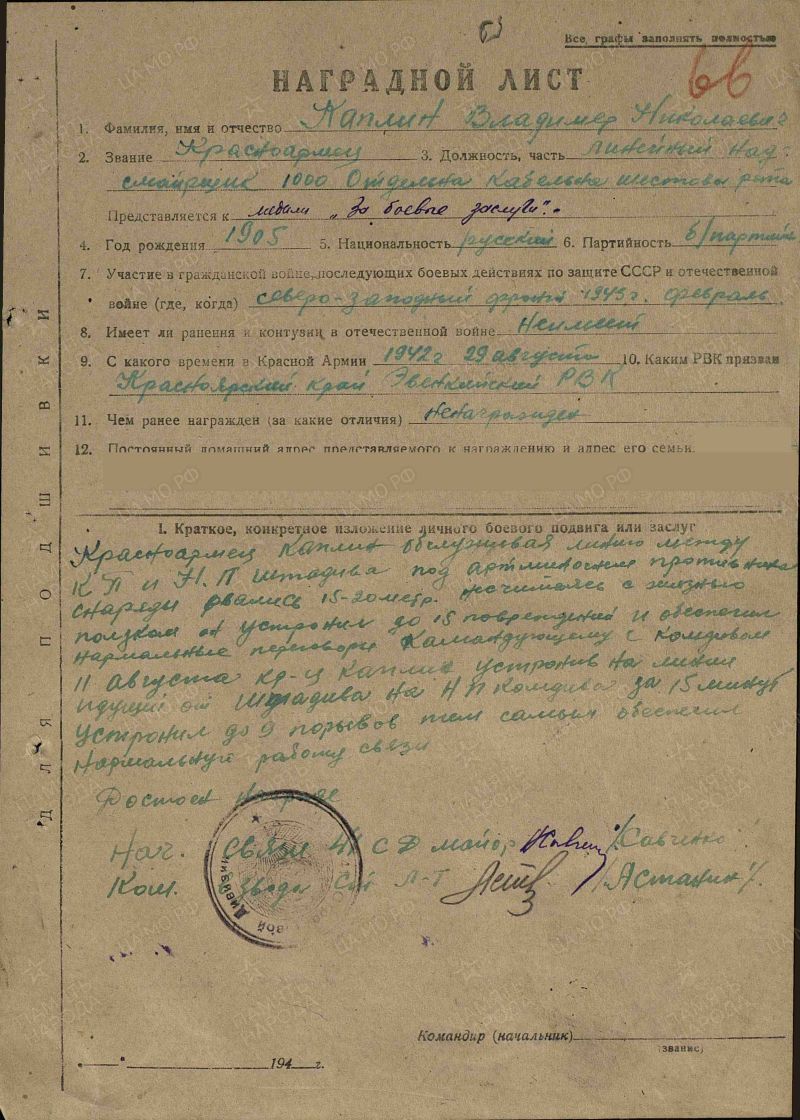 Все графы заполнять полностью
НАГРАДНОЙ ЛИСТ
1. Фамилия, имя и отчество Каплин Владимер Николаевич
2. Звание Красноармец 3. Должность, часть линейный над-
смотрщик 1000 Отдельна кабельна шестовы рота
Представляется к медали „За боевые заслуги".
4. Год рождения 1905 5. Национальность русский 6. Партийность б/партийн
7. Участие в гражданской войне, последующих боевых действиях по защите СССР и отечественной
войне (где, когда) северо-западный фронт 1943 г. февраль
8. Имеет ли ранения и контузии в отечественной войне Неимеет
9. С какого времени в Красной Армии 1942 г 29 августа 10. Каким РВК призван
Красноярский край Эвенкийский РВК
11. Чем ранее награжден (за какие отличия) Ненагражден
12. Постоянный домашний адрес представляемого к награждению и адрес его семьи.
I. Краткое, конкретное изложение личного боевого подвига или заслуг
Красноармец Каплин обслуживая линию между
КП и Н.П штадива под артминогнем противника
снаряды рвались 15-20 метр. несчитаясь с жизнью
ползком он устронил до 15 повреждений и обеспечил
нармальные переговоры Камандующему с комдивом
11 августа кр-ц Каплин на линии
идущий от Штадива на НП комдива за 15 минут
устронил до 9 порывов тем самым обеспечил
нармальную работу связи
Достоен награде
Нач. связи СД майор /Савченко/
Ком. взвода Л-Т /Астанин/.
Командир (начальник)
(звание)
194 г.
ДЛЯ ПОДШИВКИ
66